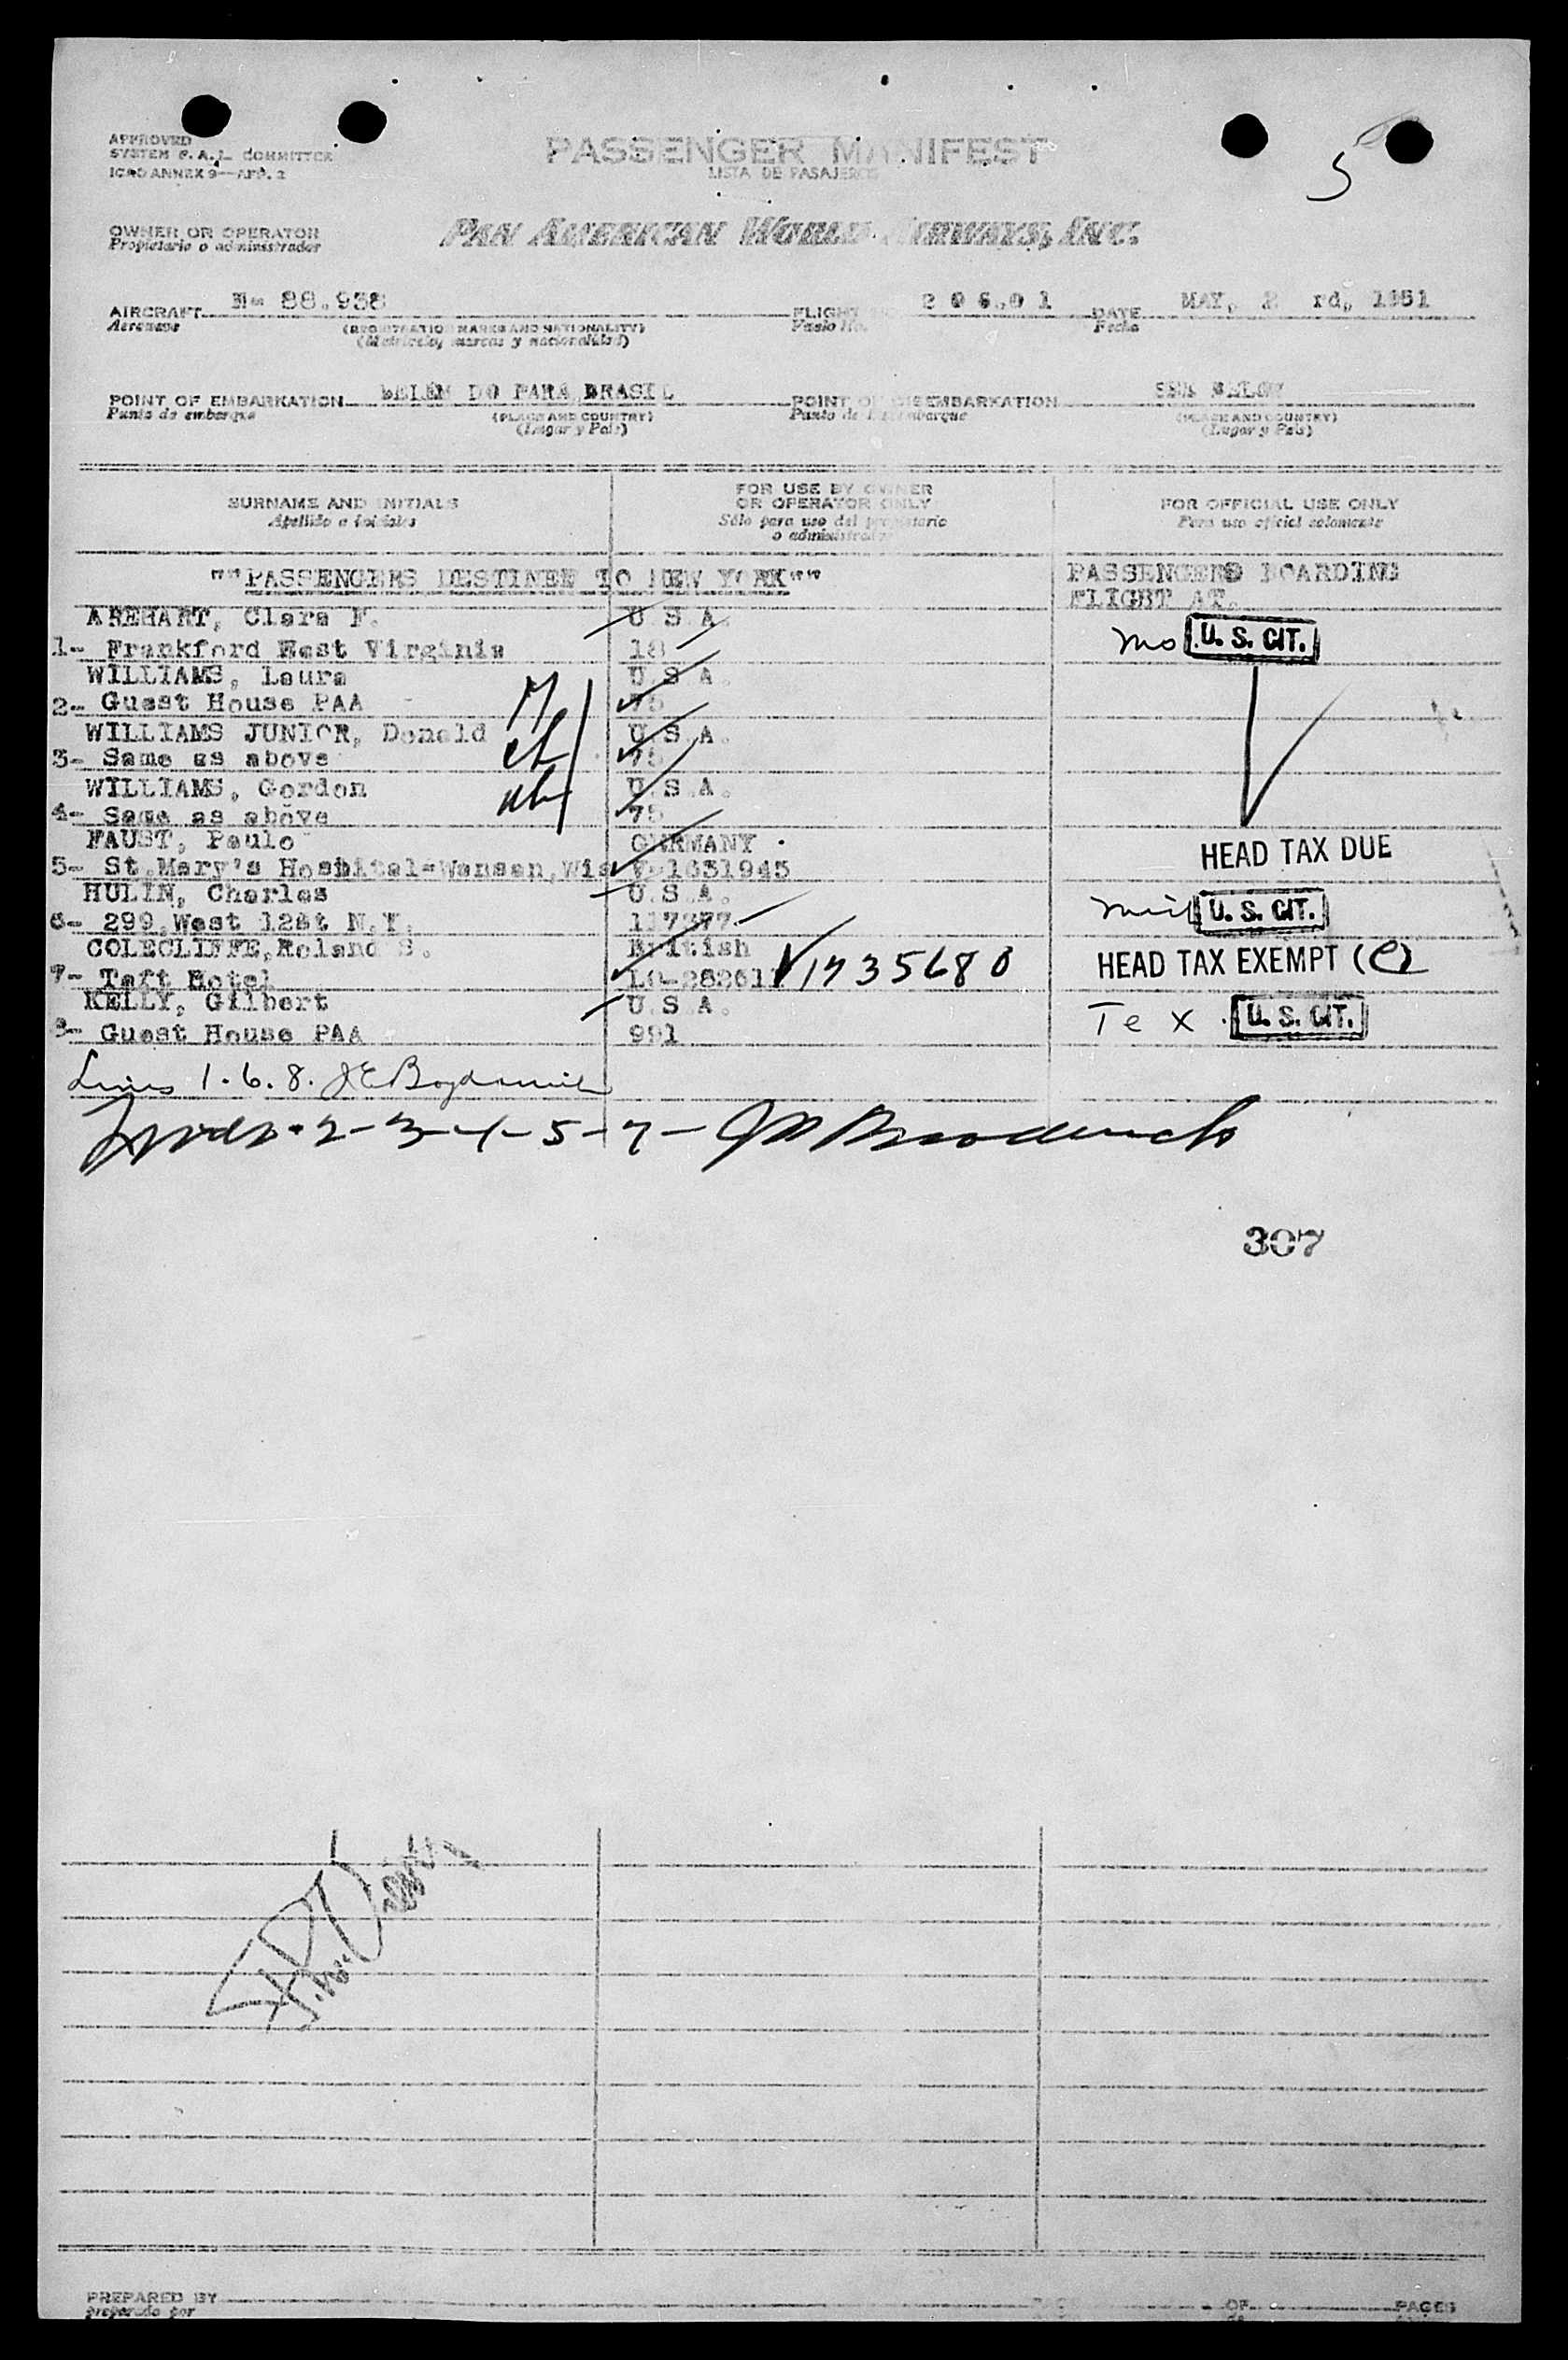 APPROVED
SYSTEM F.A.L. COMMITTEE
ICAO ANNEX 9—APP. 2
PASSENGER MANIFEST
LISTA DE PASAJEROS
5
OWNER OR OPERATOR
Propietario o administrador
PAN AMERICAN WORLD AIRWAYS, INC.
AIRCRAFT N- 88.938 FLIGHT 206.01 DATE MAY, 2 rd, 1951
Aeronave (REGISTRATION MARKS AND NATIONALITY) Fecha
(Matricula, marcas y nacionalidad)
POINT OF EMBARKATION BELEM DO PARA, BRASIL POINT OF DISEMBARKATION SEE BELOW
Punto de embarque (PLACE AND COUNTRY) Punto de desembarque (PLACE AND COUNTRY)
(Lugar y Pais) (Lugar y Pais)
SURNAME AND INITIALS FOR USE BY OWNER OR OPERATOR ONLY FOR OFFICIAL USE ONLY
Apellido e iniciales Sólo para uso del propietario o administrador Para uso oficial solamente
""PASSENGERS DESTINED TO NEW YORK"" PASSENGERS BOARDING
FLIGHT AT.
AREHART, Clara F. U.S.A.
1- Frankford West Virginia 18 mo. U. S. CIT.
WILLIAMS, Laura U.S.A.
2- Guest House PAA 75
WILLIAMS JUNIOR, Donald U.S.A.
3- Same as above 75
WILLIAMS, Gordon U.S.A.
4- Same as above 75
FAUST, Paulo GERMANY HEAD TAX DUE
5- St.Mary's Hospital-Wansan,Wis V-1631945
HULIN, Charles U.S.A. U. S. CIT.
6- 299,West 12st N.Y. 117377
COLECLIFFE, Roland S. British
7- Taft Hotel V1735680 HEAD TAX EXEMPT (e)
KELLY, Gilbert U.S.A. Tex. U. S. CIT.
8- Guest House PAA 991
Lines 1.6.8.
2-3-4-5-7-
307
PREPARED BY OF PAGES
preparado por de